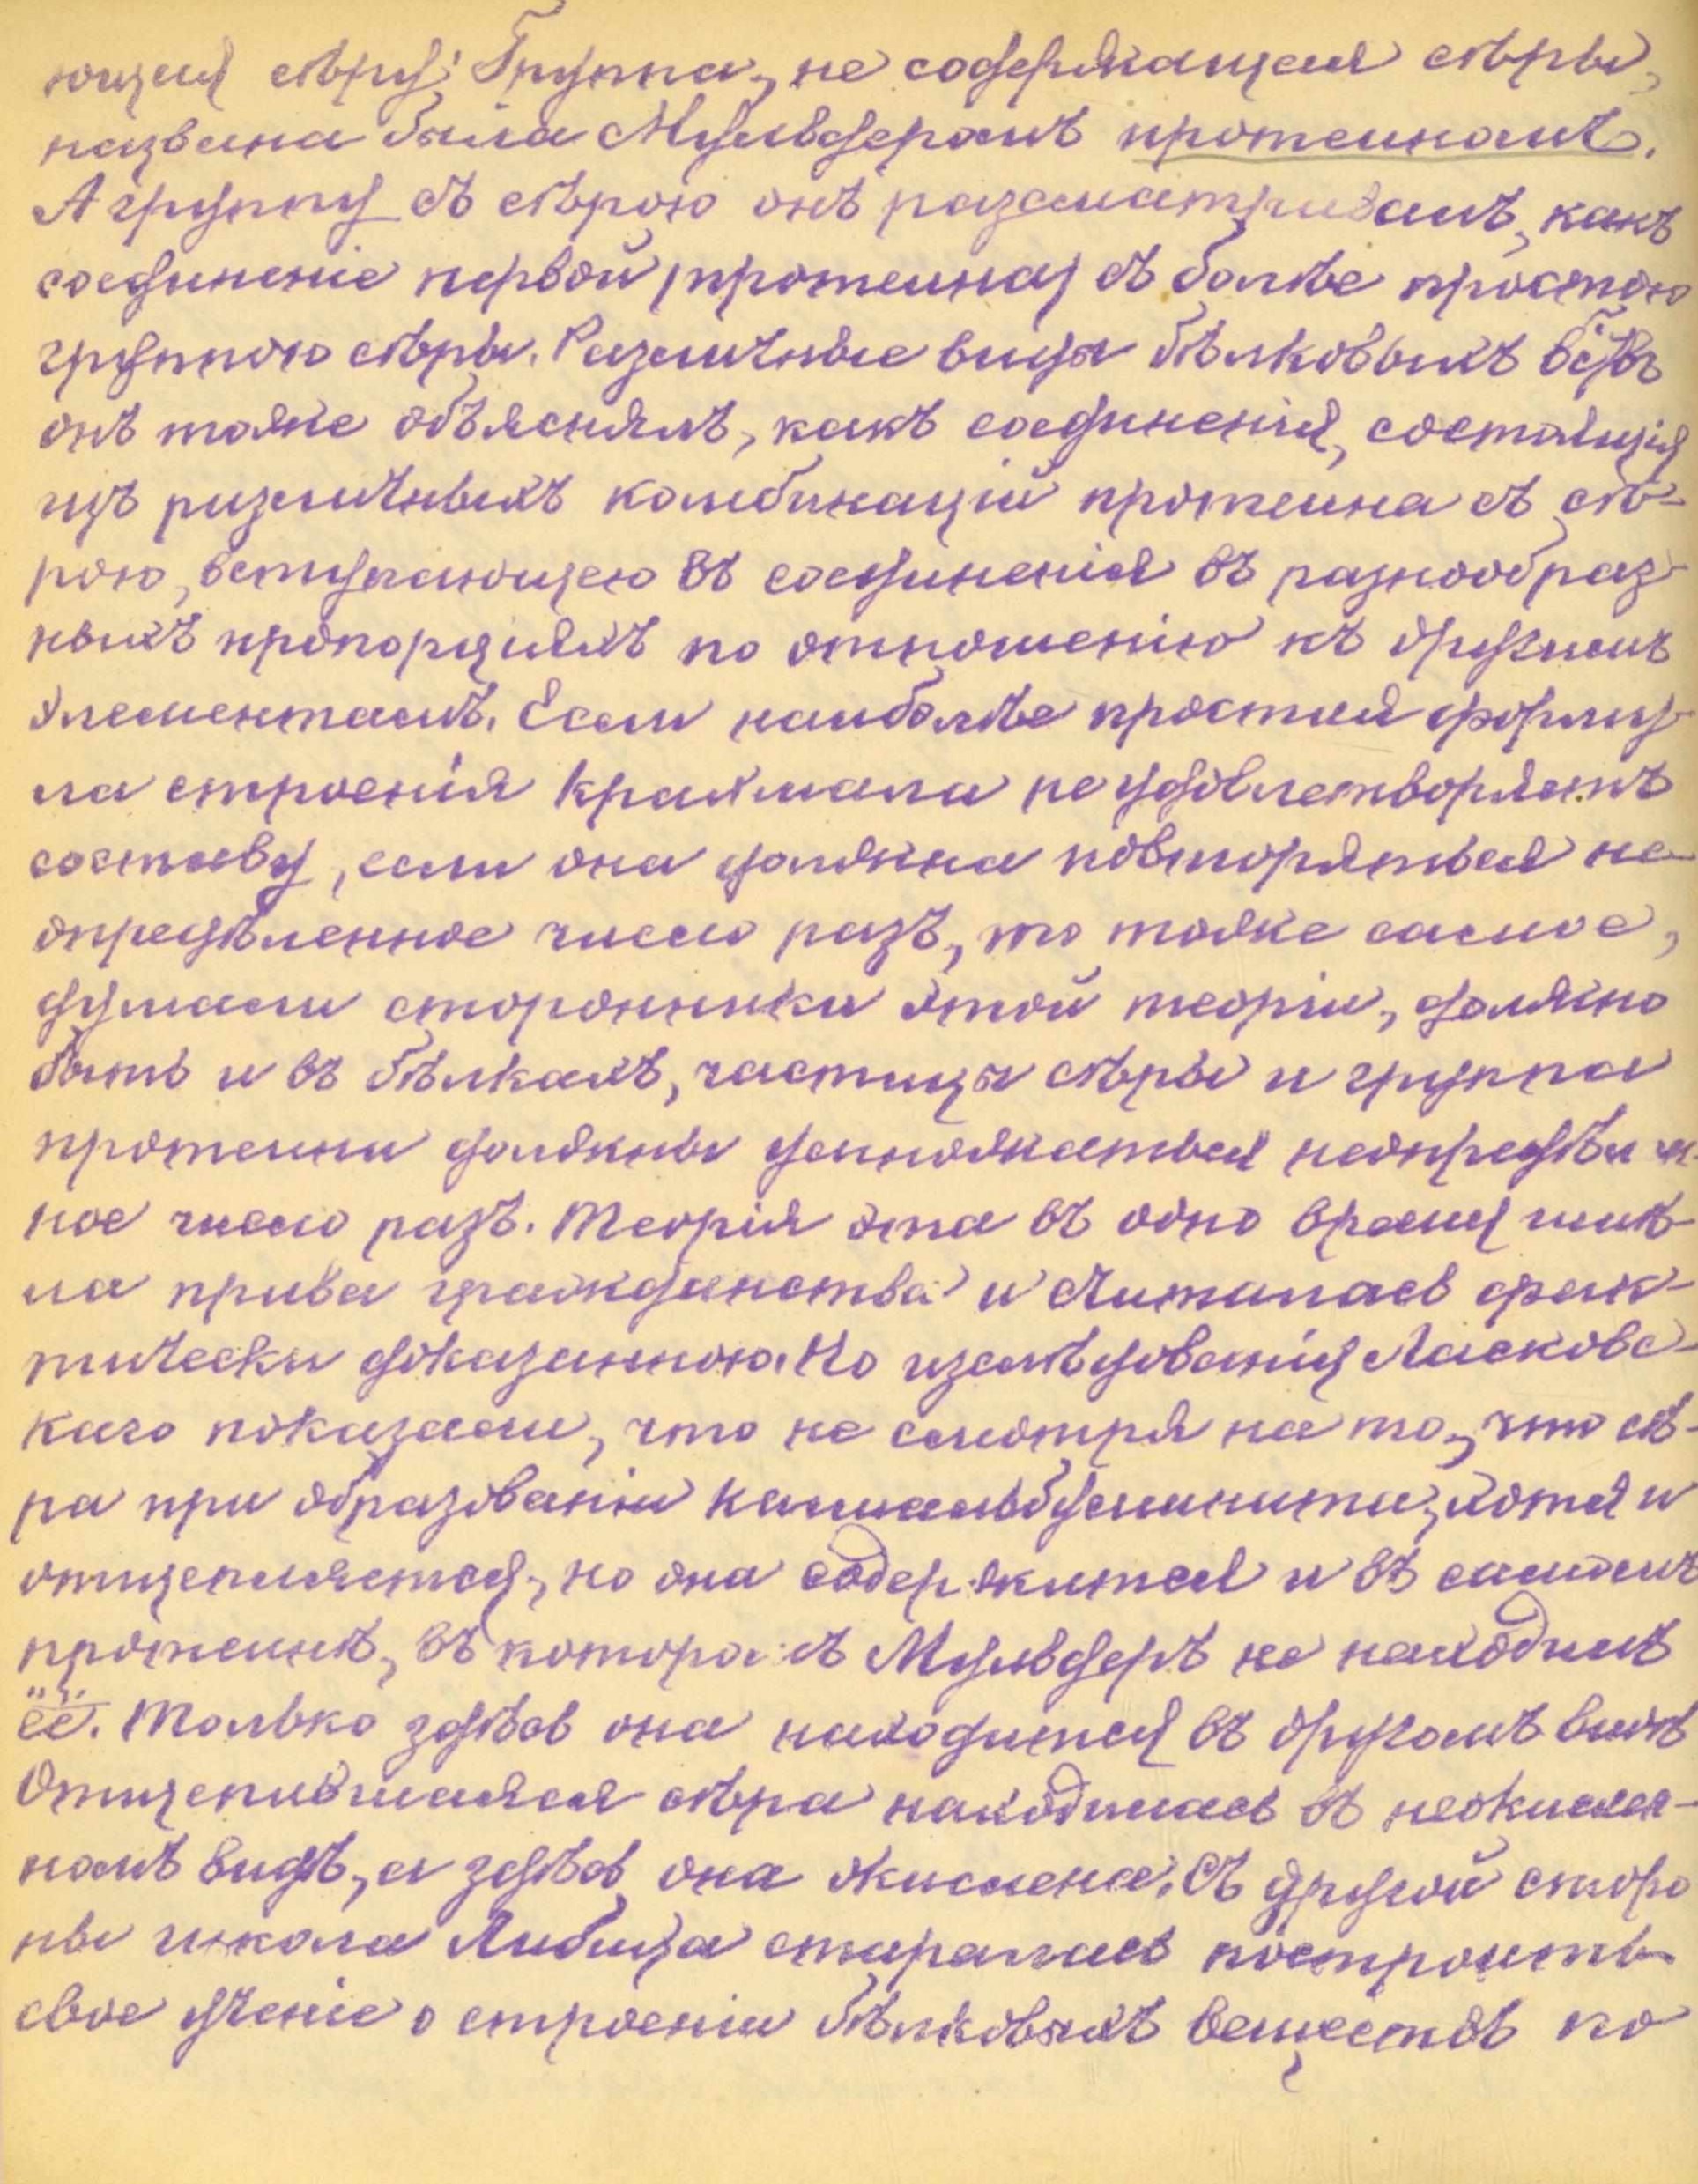 ющей сѣру; Группа, не содержащая сѣры,
названа была Мульдеромъ протеиномъ.
А группу съ сѣрою онъ разсматривалъ, какъ
соединеніе первой (протеина) съ болѣе простою
группою сѣры. Различные виды бѣлковыхъ в-въ
онъ тоже объяснялъ, какъ соединенія, состоящія
изъ различныхъ комбинацій протеина съ сѣ-
рою, вступающею въ соединенія въ разнообраз-
ныхъ пропорціяхъ по отношенію къ другимъ
элементамъ. Если наиболѣе простая форму-
ла строенія крахмала не удовлетворяетъ
составу, если она должна повторяться не-
опредѣленное число разъ, то тоже самое,
думали сторонники этой теоріи, должно
быть и въ бѣлкахъ, частицы сѣры и группа
протеина должны умножаться неопредѣлен-
ное число разъ. Теорія эта въ одно время имѣ-
ла права гражданства и считалась фак-
тически доказанною. Но изслѣдованія Ласковс-
каго показали, что не смотря на то, что сѣ-
ра при образованіи хотя и
отщепляется, но она содержится и въ самомъ
протеинѣ, въ которомъ Мульдеръ не находилъ
ее. Только здѣсь она находится въ другомъ видѣ
Отщепившаяся сѣра находилась въ неокислен-
номъ видѣ, а здѣсь она окислена. Съ другой сторо
ны школа Либиха старалась построить
свое ученіе о строеніи бѣлковыхъ веществъ по